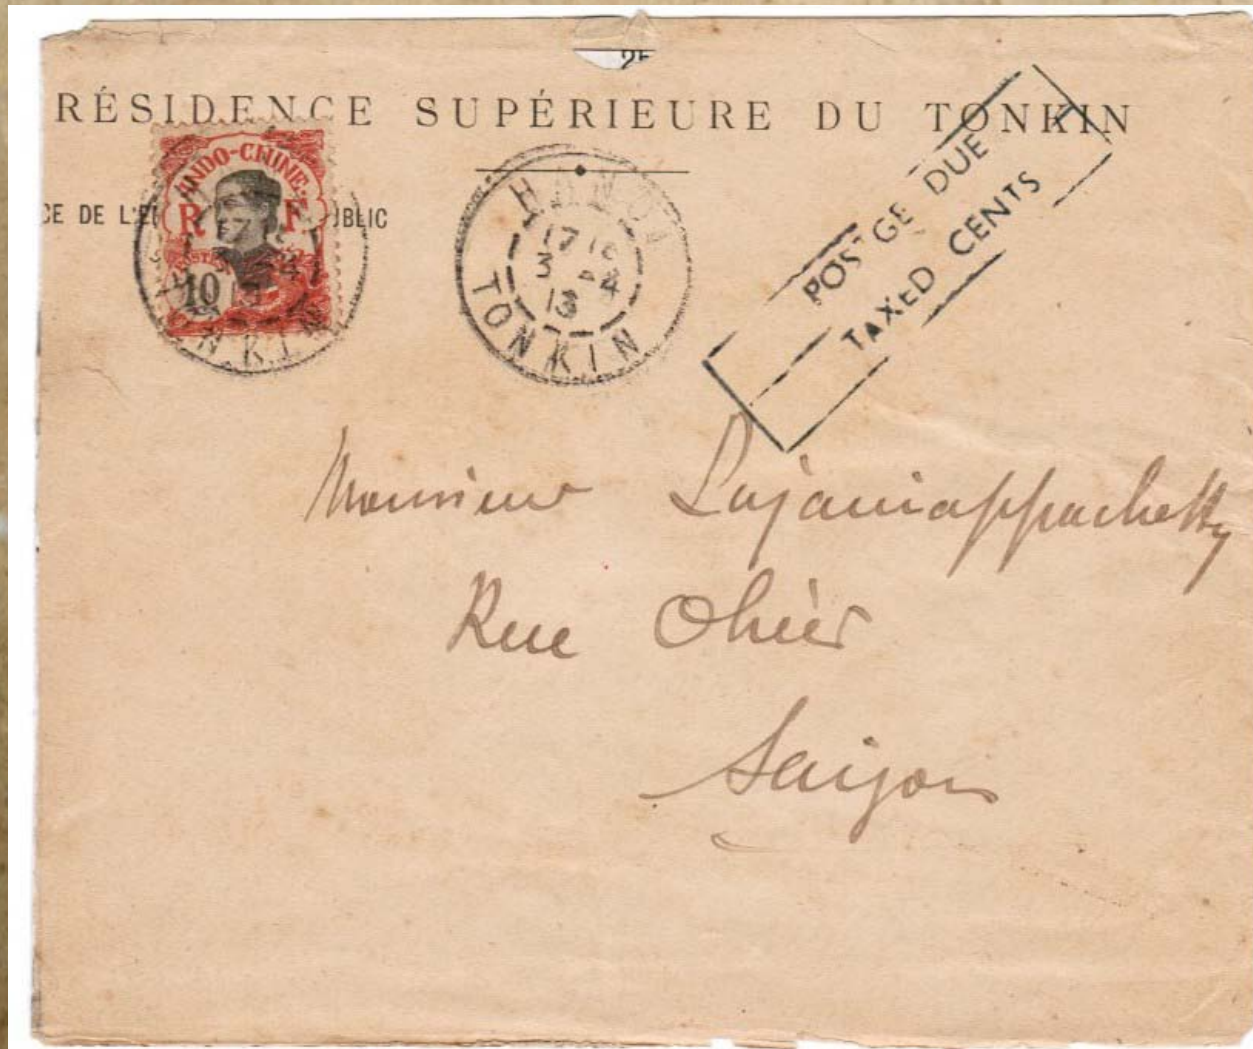 RÉSIDENCE SUPÉRIEURE DU TONKIN
CE DE L'E
BLIC
INDO-CHINE
R F
10
HANOI
3
13
TONKIN
POSTGE DUE
TAXED CENTS
Monsieur
Rue Ohier
Saigon